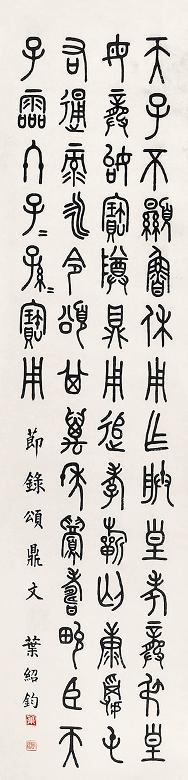 天子不顯魯休用乍朕皇考龏弔皇
母龏姒寶尊鼎用追孝祈匄康𩰫屯
右通彔永令頌其萬年眉壽畯臣天
子霝冬子=孫=寶用
節錄頌鼎文 葉紹鈞